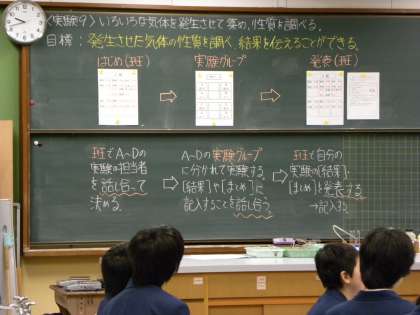 〈実験9〉いろいろな気体を発生させて集め、性質を調べる。
目標：発生させた気体の性質を調べ、結果を伝えることができる。
はじめ(班)
実験グループ
発表(班)
班でA~Dの
実験の担当者
を話し合って
決める。
A~Dの実験グループ
に分かれて実験する。
[結果]や[まとめ]に
記入することを話し合う。
班で自分の
実験の[結果]、
[まとめ]を発表する
→記入する。